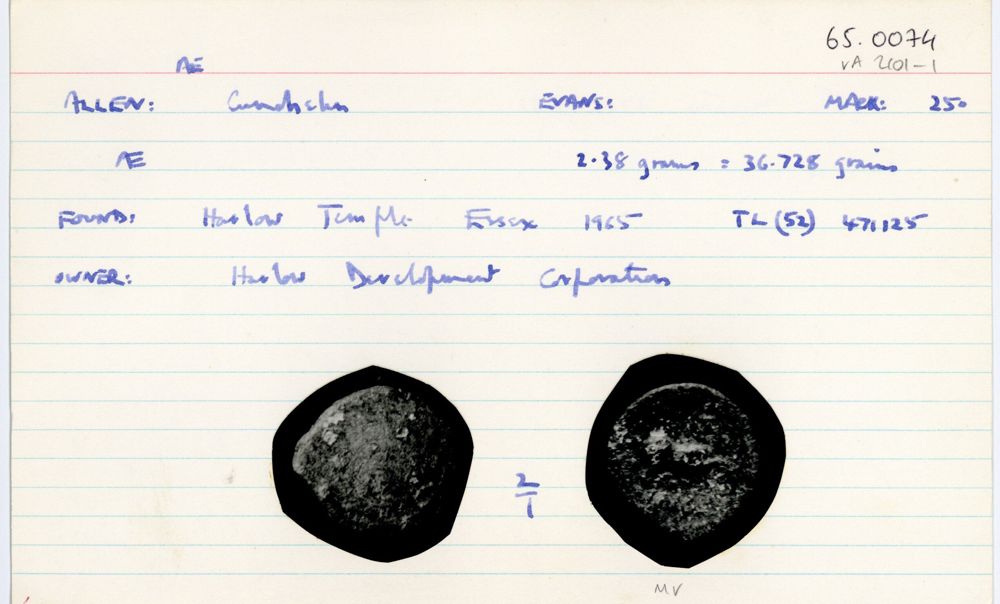 65.0074
VA 2101-1
Æ
ALLEN: Cunobelin EVANS: MACK: 250
Æ 2.38 grams = 36.728 grains
FOUND: Harlow Temple Essex 1965 TL (52) 471125
OWNER: Harlow Development Corporation
2/1
MV